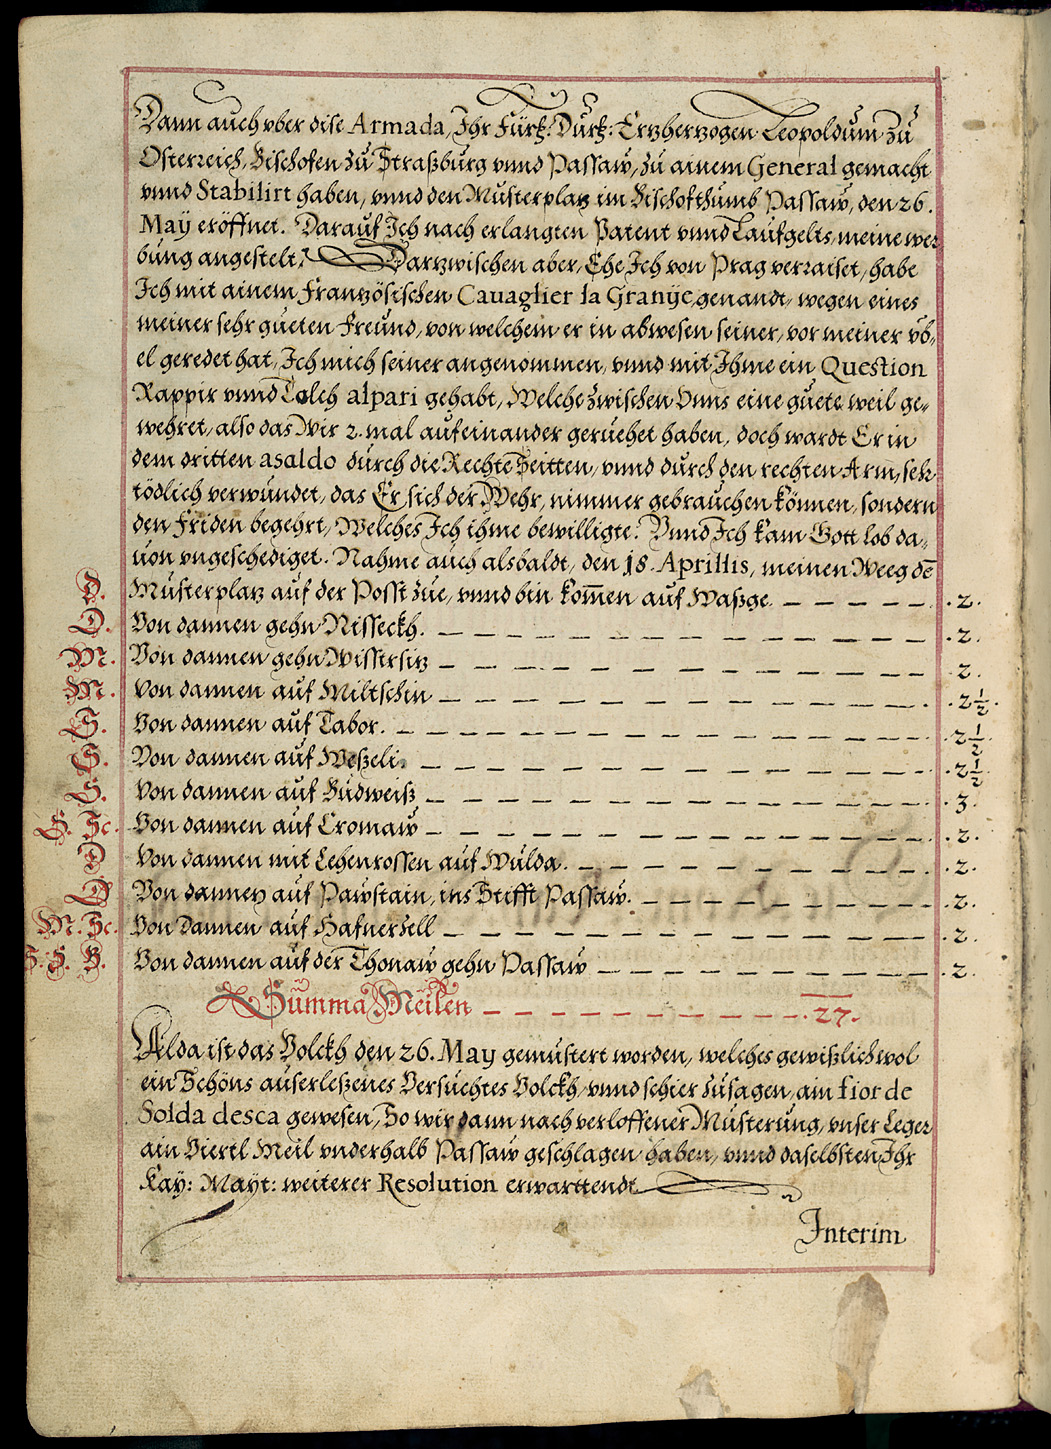 Dann auch vber dise Armada, Ihr Fürstl: Durstl: Ertzhertzogen Leopoldum zu
Osterreich, Bischofen zu Straßburg vnnd Passaw, zu ainem General gemacht
vnnd Stabilirt haben, vnnd den Musterplatz im Bischofthumb Passaw, den 26.
Maÿ eröffnet. Darauf Ich nach erlangten Patent vnnd Laufgelts, meine wer
bung angestelt, Dartzwischen aber, Ehe Ich von Prag verraiset, habe
Ich mit ainem Frantzösischen Cauaglier la Granÿe genandt, wegen eines
meiner sehr gueten Freund, von welchem er in abwesen seiner, vor meiner vb,,
el geredet hat, Ich mich seiner angenommen, vnnd mit Ihme ein Question
Rappir vnnd Tolch alpari gehabt, Welche zwischen Vnns eine guete weil ge,,
wehret, also das Wir 2. mal aufeinander geruehet haben, doch wardt Er in
dem dritten asaldo durch die Rechte Seitten, vnnd durch den rechten Arm, sehr
tödlich verwundet, das Er sich der Wehr, nimmer gebrauchen können, sondern
den Friden begehrt, Welches Ich ihme bewilligte. Vnnd Ich kam Gott lob da,,
uon vngeschediget. Nahme auch alsbaldt, den 18. Aprillis, meinen Weeg dē
D. Musterplatz auf der Posst zue, vnnd bin kom̄en auf Waßge. .2.
O. Von dannen gehn Nisseckh. .2.
M. Von dannen gehn Wissersitz .2.
M. Von dannen auf Miltschin .2 1/2.
S. Von dannen auf Tabor. .2 1/2
S. Von dannen auf Weßeli. .2 1/2
S. Von dannen auf Budweiß .3.
S. Zc. Von dannen auf Cromaw .2.
D Von dannen mit Lehenrossen auf Wulda. .2.
O Von dannen auf Pawstain, ins Stifft Passaw. .2.
M. Zc. Von dannen auf Hafnerzell .2.
S. S. B. Von dannen auf der Thonaw gehn Passaw .2.
Summa Meilen .27.
Alda ist das Volckh den 26. May gemustert worden, welches gewißlich wol
ein Schöns auserleßenes Versuchtes Volckh, vnnd schier zusagen, ain fior de
Solda desca gewesen, So wir dann nach verloffener Musterung, vnser Leger
ain Viertl Meil vnderhalb Passaw geschlagen haben, vnnd daselbsten Ihr
Kaÿ: Maÿt: weiterer Resolution erwarttendt
Interim